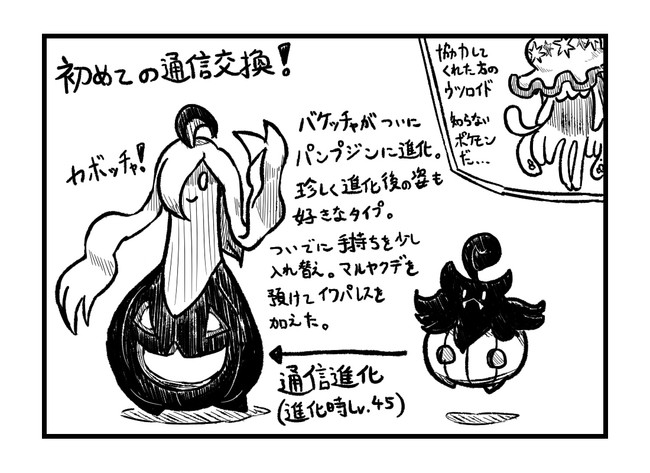 初めての通信交換!
協力して
くれた方の
ウツロイド
知らない
ポケモン
だ…
カボッチャ!
バケッチャがついに
パンプジンに進化。
珍しく進化後の姿も
好きなタイプ。
ついでに手持ちを少し
入れ替え。マルヤクデを
預けてイワパレスを
加えた。
通信進化
(進化時Lv.45)